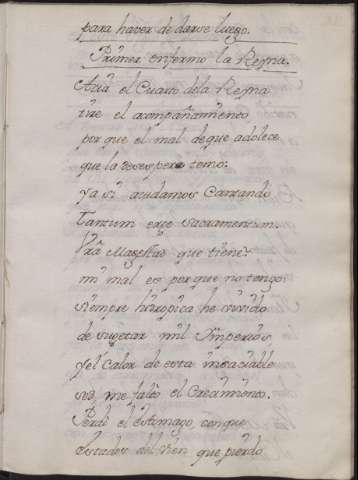 para haver de darse luego.
Primer enfermo la Reyna.
Acia el Cuarto de la Reyna
tire el acompañamiento
por que el mal de que adolece
que la desespera temo:
ya si acudamos Cantando
Tantum ergo Sacramentum.
Vrã Magestad que tiene?
mi mal es por que no tengo:
siempre hidropica he vivido
de sugetar mil Imperios,
y el Calor de esta insaciable
sed, me faltò el Crecimiento.
Perdi el estomago, con que
estados del Rien que pierdo